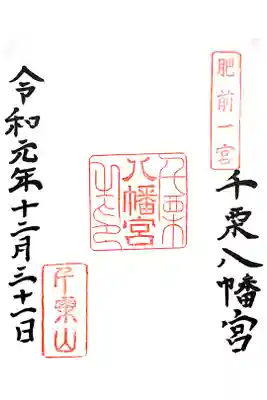 肥前一宮
千栗八幡宮
千栗
八幡宮
之印
令和元年十二月三十一日
千栗山